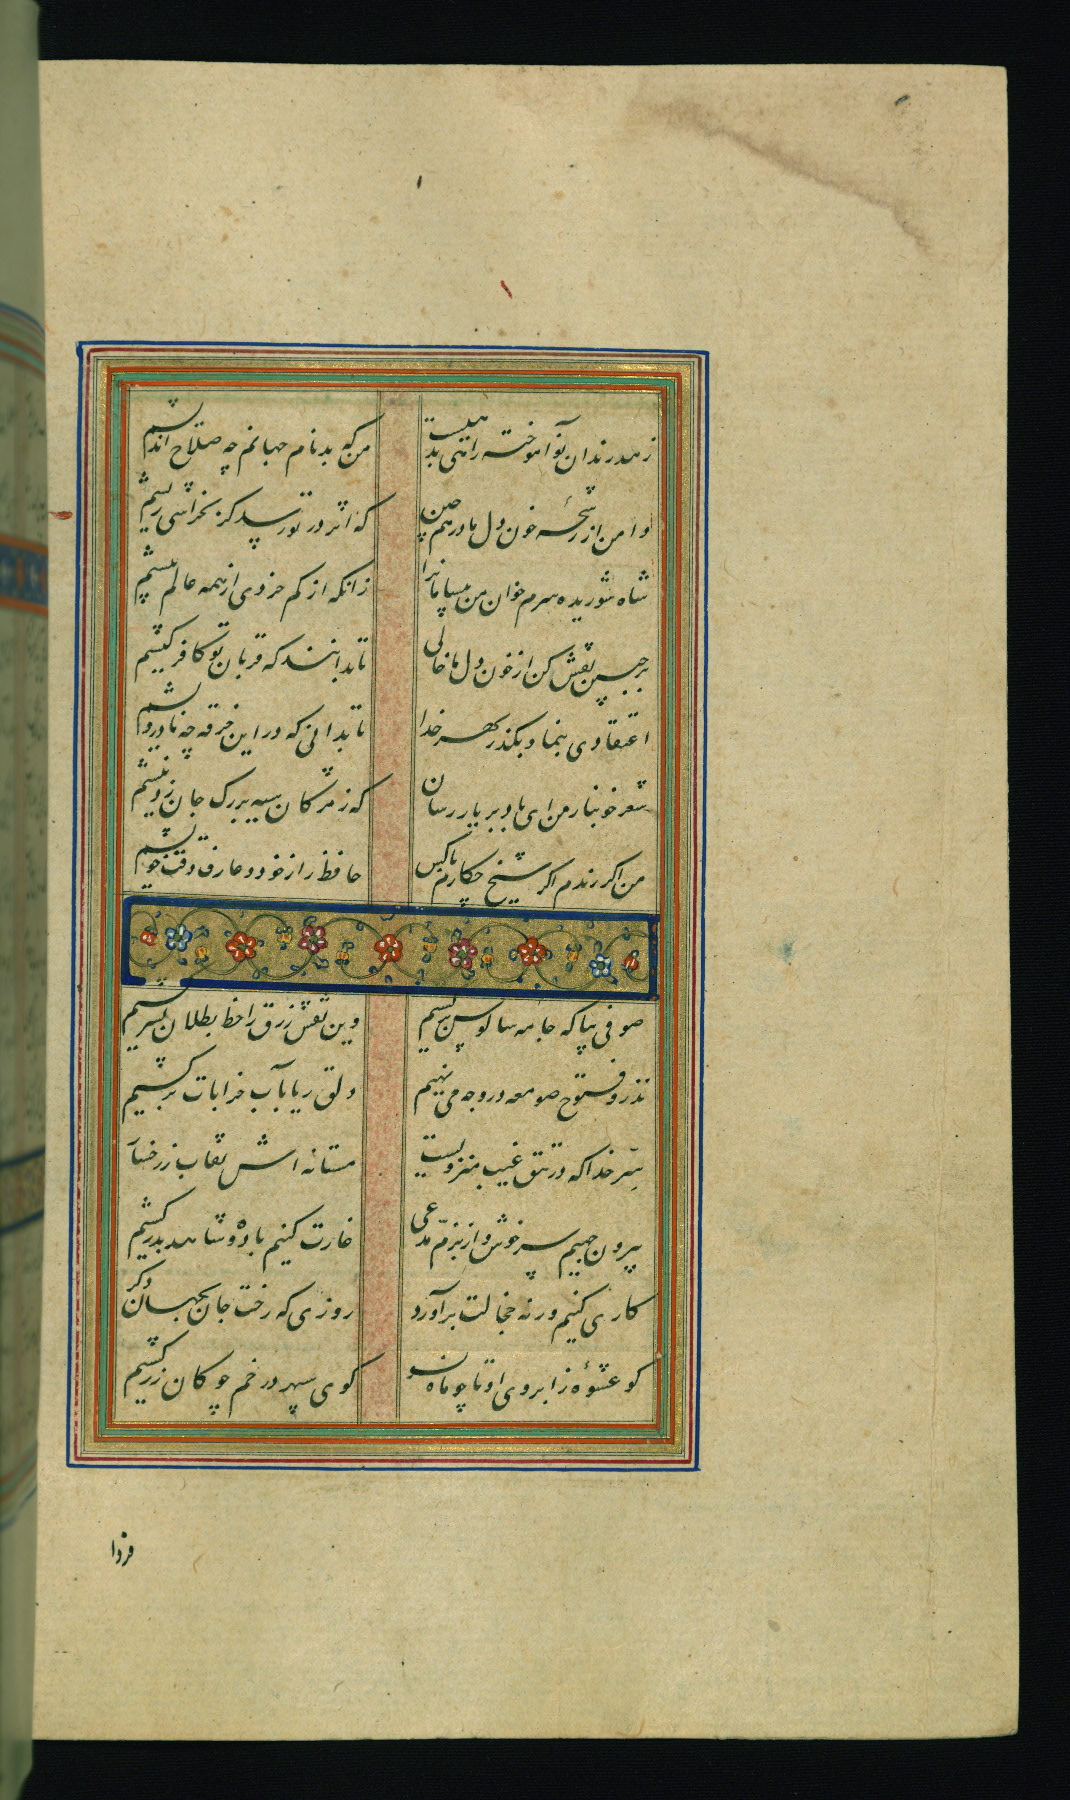 زهد رندان نوآموخته راهی بدهیست
من که بدنام جهانم چه صلاح اندیشم
دامن از رشحه خون دل ما درهم چین
که اثر در تو رسد کر بخراشی ریشم
شاه شوریده سرم خوان من بیسامانرا
زانکه از کم خردی از همه عالم بیشم
بر جبین نقش کن از خون دل ما خالی
تا بدانند که قربان تو کافر کیشم
اعتقادی بنما و بکذر بهر خدا
تا بدانی که در این خرقه چه نادرویشم
شعر خونبار من ای باد بر یار رسان
که ز مژکان سیه بر رک جان زد نیشم
من اکر رندم اکر شیخ چکارم باکس
حافظ راز خود و عارف وقت خویشم
صوفی بیا که جامه سالوس برکشیم
وین نقش زرق را خط بطلان بسر کشیم
نذر و فتوح صومعه در وجه می نهیم
دلق ریا بآب خرابات برکشیم
سر خدا که در تتق غیب منزویست
مستانه اش نقاب ز رخسار
بیرون جهیم سرخوش و از بزم مدعی
غارت کنیم باده و شاهد ببر کشیم
کاری کنیم ورنه خجالت برآورد
روزی که رخت جان بجهان دکر کشیم
کو عشوه ز ابروی او تا چو ماه نو
کوی سپهر در خم چوکان زر کشیم
فردا